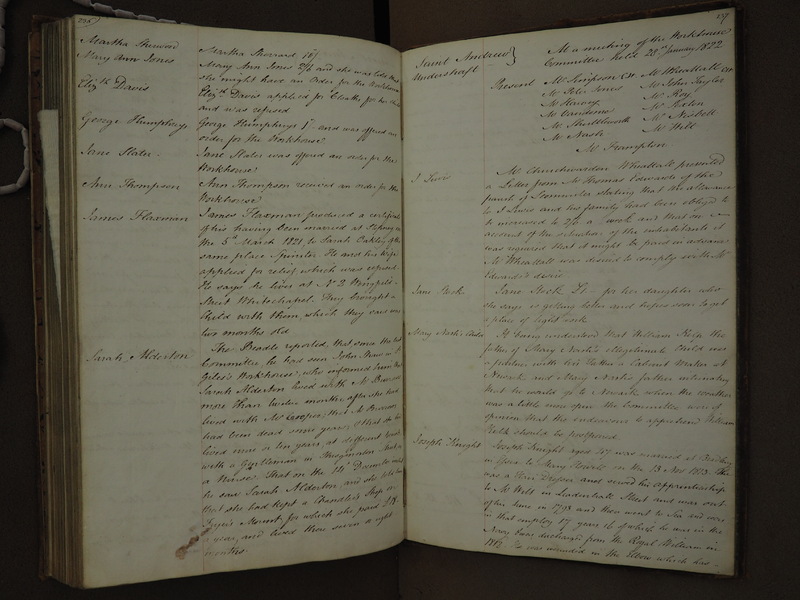 236
Martha Sherrard
Martha Sherrard 1s/
Mary Ann Jones
Mary Ann Jones 2/6 and she was told that
she might have an Order for the Workhouse
Elizth Davis
Elizth Davis applied for Cloaths for her Child
and was refused
George Humphrys
George Humphrys 1s/ and was offered an
order for the Workhouse
Jane Slater
Jane Slater was offered an order for the
Workhouse
Ann Thompson
Ann Thompson received an order for the
Workhouse
James Flaxman
James Flaxman produced a certificate
of his having been married at Stepney on
the 5th March 1821, to Sarah Oakley of the
same place Spinster. He and his wife
applied for relief which was refused.
He says he lives at No 2 Wingfield
Street Whitechapel. They brought a
Child with them which they said was
two months old
Sarah Alderton
The Beadle reported, that since the last
Committee he has seen John in St
Giles's Workhouse, who informed him that
Sarah Alderton lived with Mr
more than twelve months after she had
lived with Mr Cooper, that Mr
had been dead some years, & that she had
lived nine or ten years at different times
with a Gentleman in as
a Nurse. That on the 14th December
he saw Sarah Alderton, and she told him
that she had kept a Chandler's Shop in
Fryer's Mount, for which she paid £18
a year, and lived there seven or eight
months.
237
Saint Andrew
Undershaft
At a meeting of the Workhouse
Committee held 28th January 1822
Present Mr Simpson CW Mr Wheatall CW
Mr Peter Jones Mr John Taylor
Mr Harvey Mr Roy
Mr Vandome Mr
Mr Shuttleworth Mr Nesbitt
Mr Nash Mr Hill
Mr Frampton
J Lewis
Mr Churchwarden Wheatall presented
a Letter from Mr Thomas Edwards of the
parish of stating that the allowance
to J Lewis and his family had been obliged to
be increased to 2/6 a week and that on
account of the situation of the inhabitants it
was required that it might be paid in advance
Mr Wheatall was desired to comply with Mr
Edwards's desire
Jane Stock
Jane Stock £1 – for her daughter, who
she says is getting better and hopes soon to get
a place of light work
Mary Nash's Child
It being understood that William Kelk the
father of Mary Nash's illegitimate Child was
a with his Father a Cabinet Maker at
Newark and Mary Nash's father intimating
that he would go to Newark when the weather
was a little more open the Committee were of
opinion that the endeavour to apprehend William
Kelk should be postponed
Joseph Knight
Joseph Knight aged 47 was married at
in to Mary Powell on the 13 Nov 1813. He
was a Hair Dresser and served his apprenticeship
to Mr Hill in Leadenhall Street and was out
of his time in 1798 and then went to Sea and was
in that employ 17 years 16 of which he was in the
Navy. Was discharged from the Royal William in
1815. He was wounded in the Elbow which has